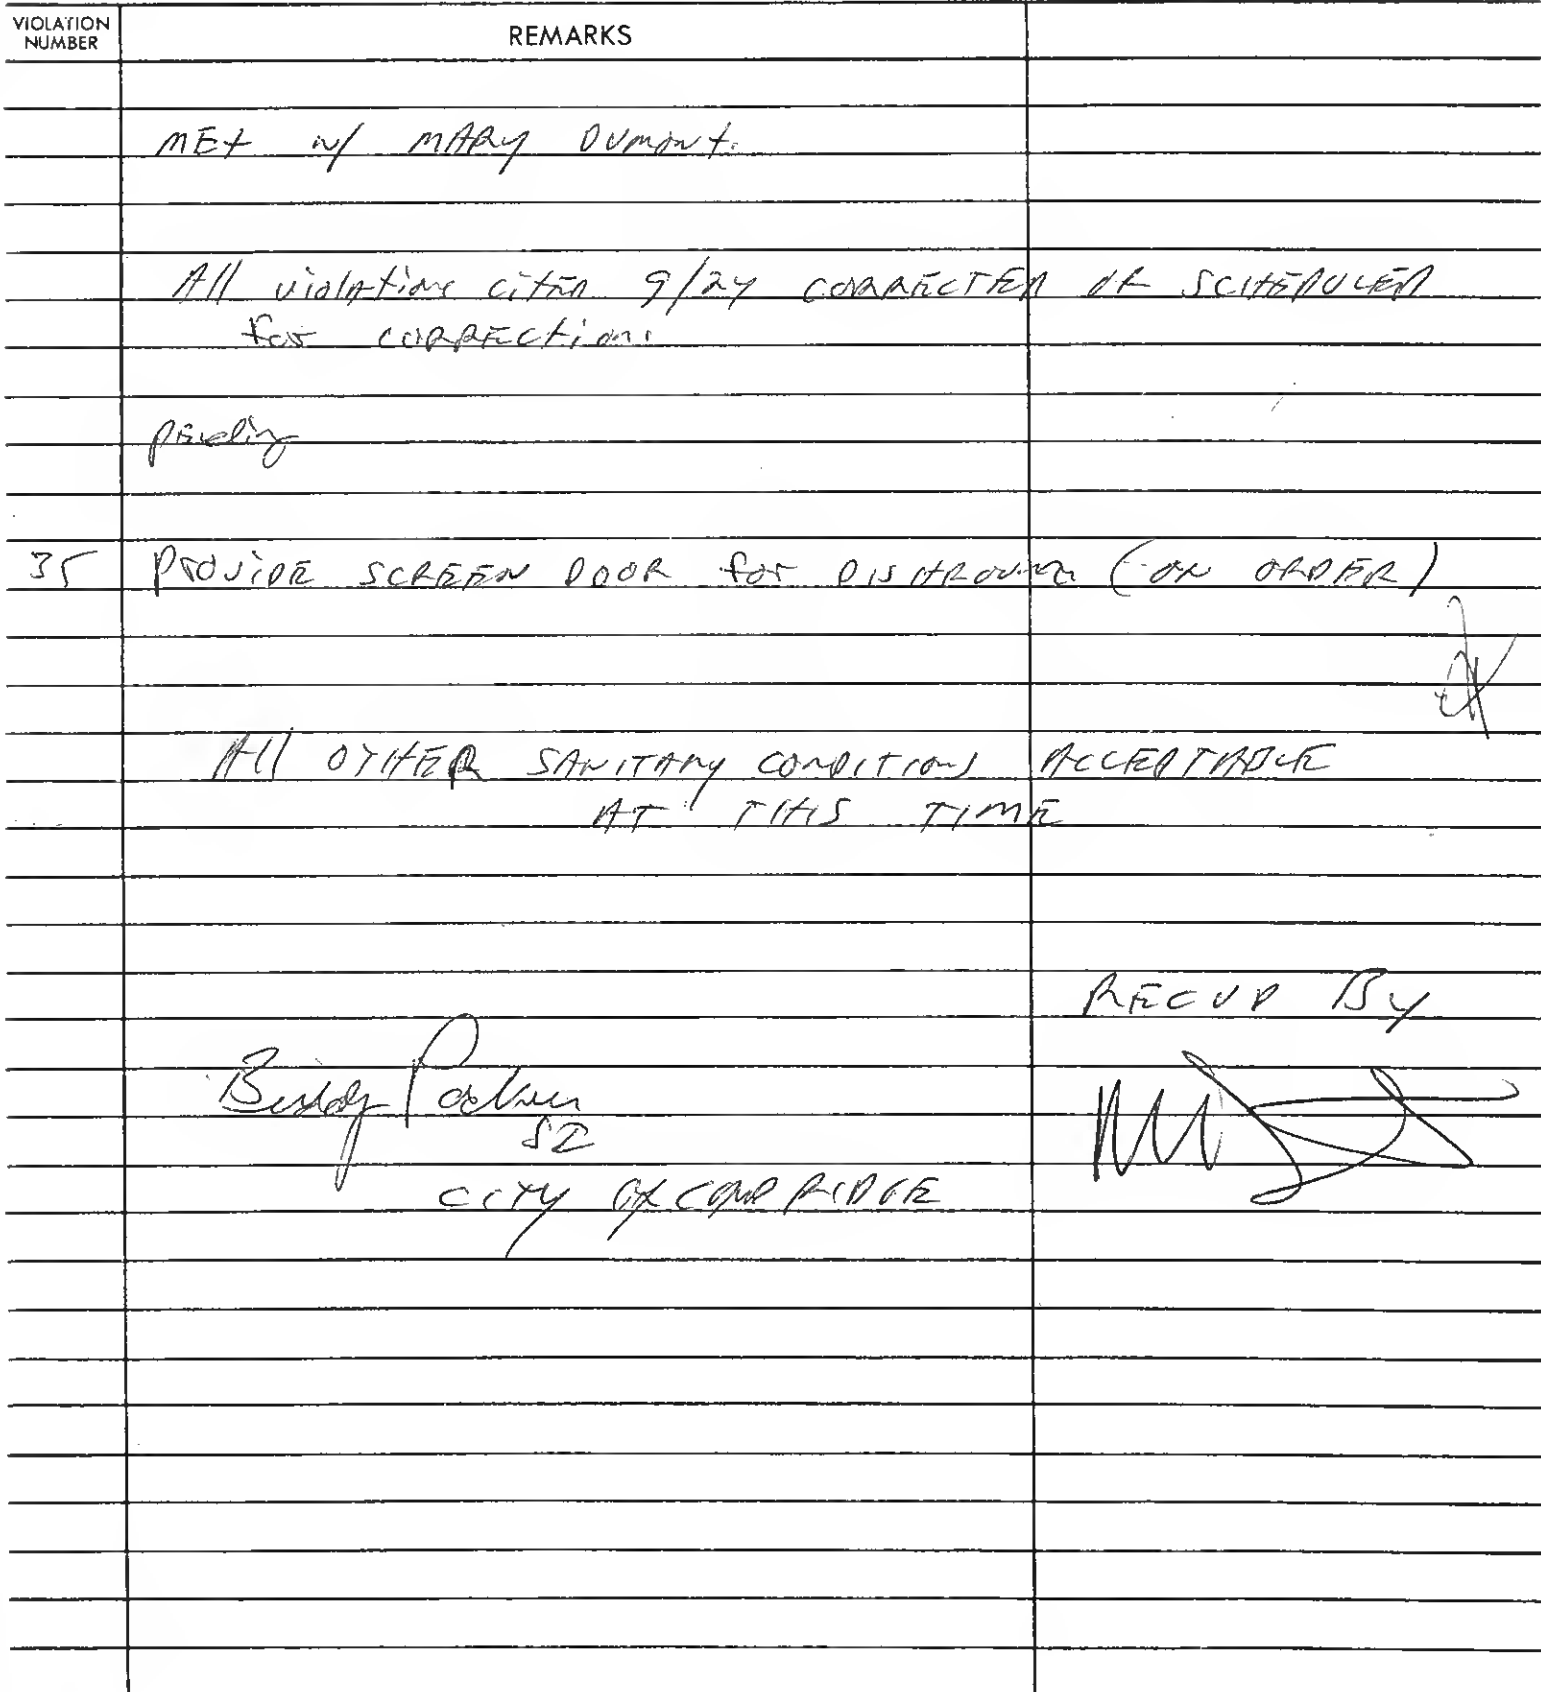 VIOLATION NUMBER
REMARKS
MEt w/ MARy DUmont.
All violations citED 9/24 CORRECTED OR SCHEDULED
for CORRECtion.
pending
35 PROViDE SCREEN DOOR for DISHROOM (ON ORDER)
All OTHER SANITARy CONDITIONS ACCEPTABLE
AT THIS TIME
RECVD By
Buddy Packer
SI
CITY OF CAMBRIDGE